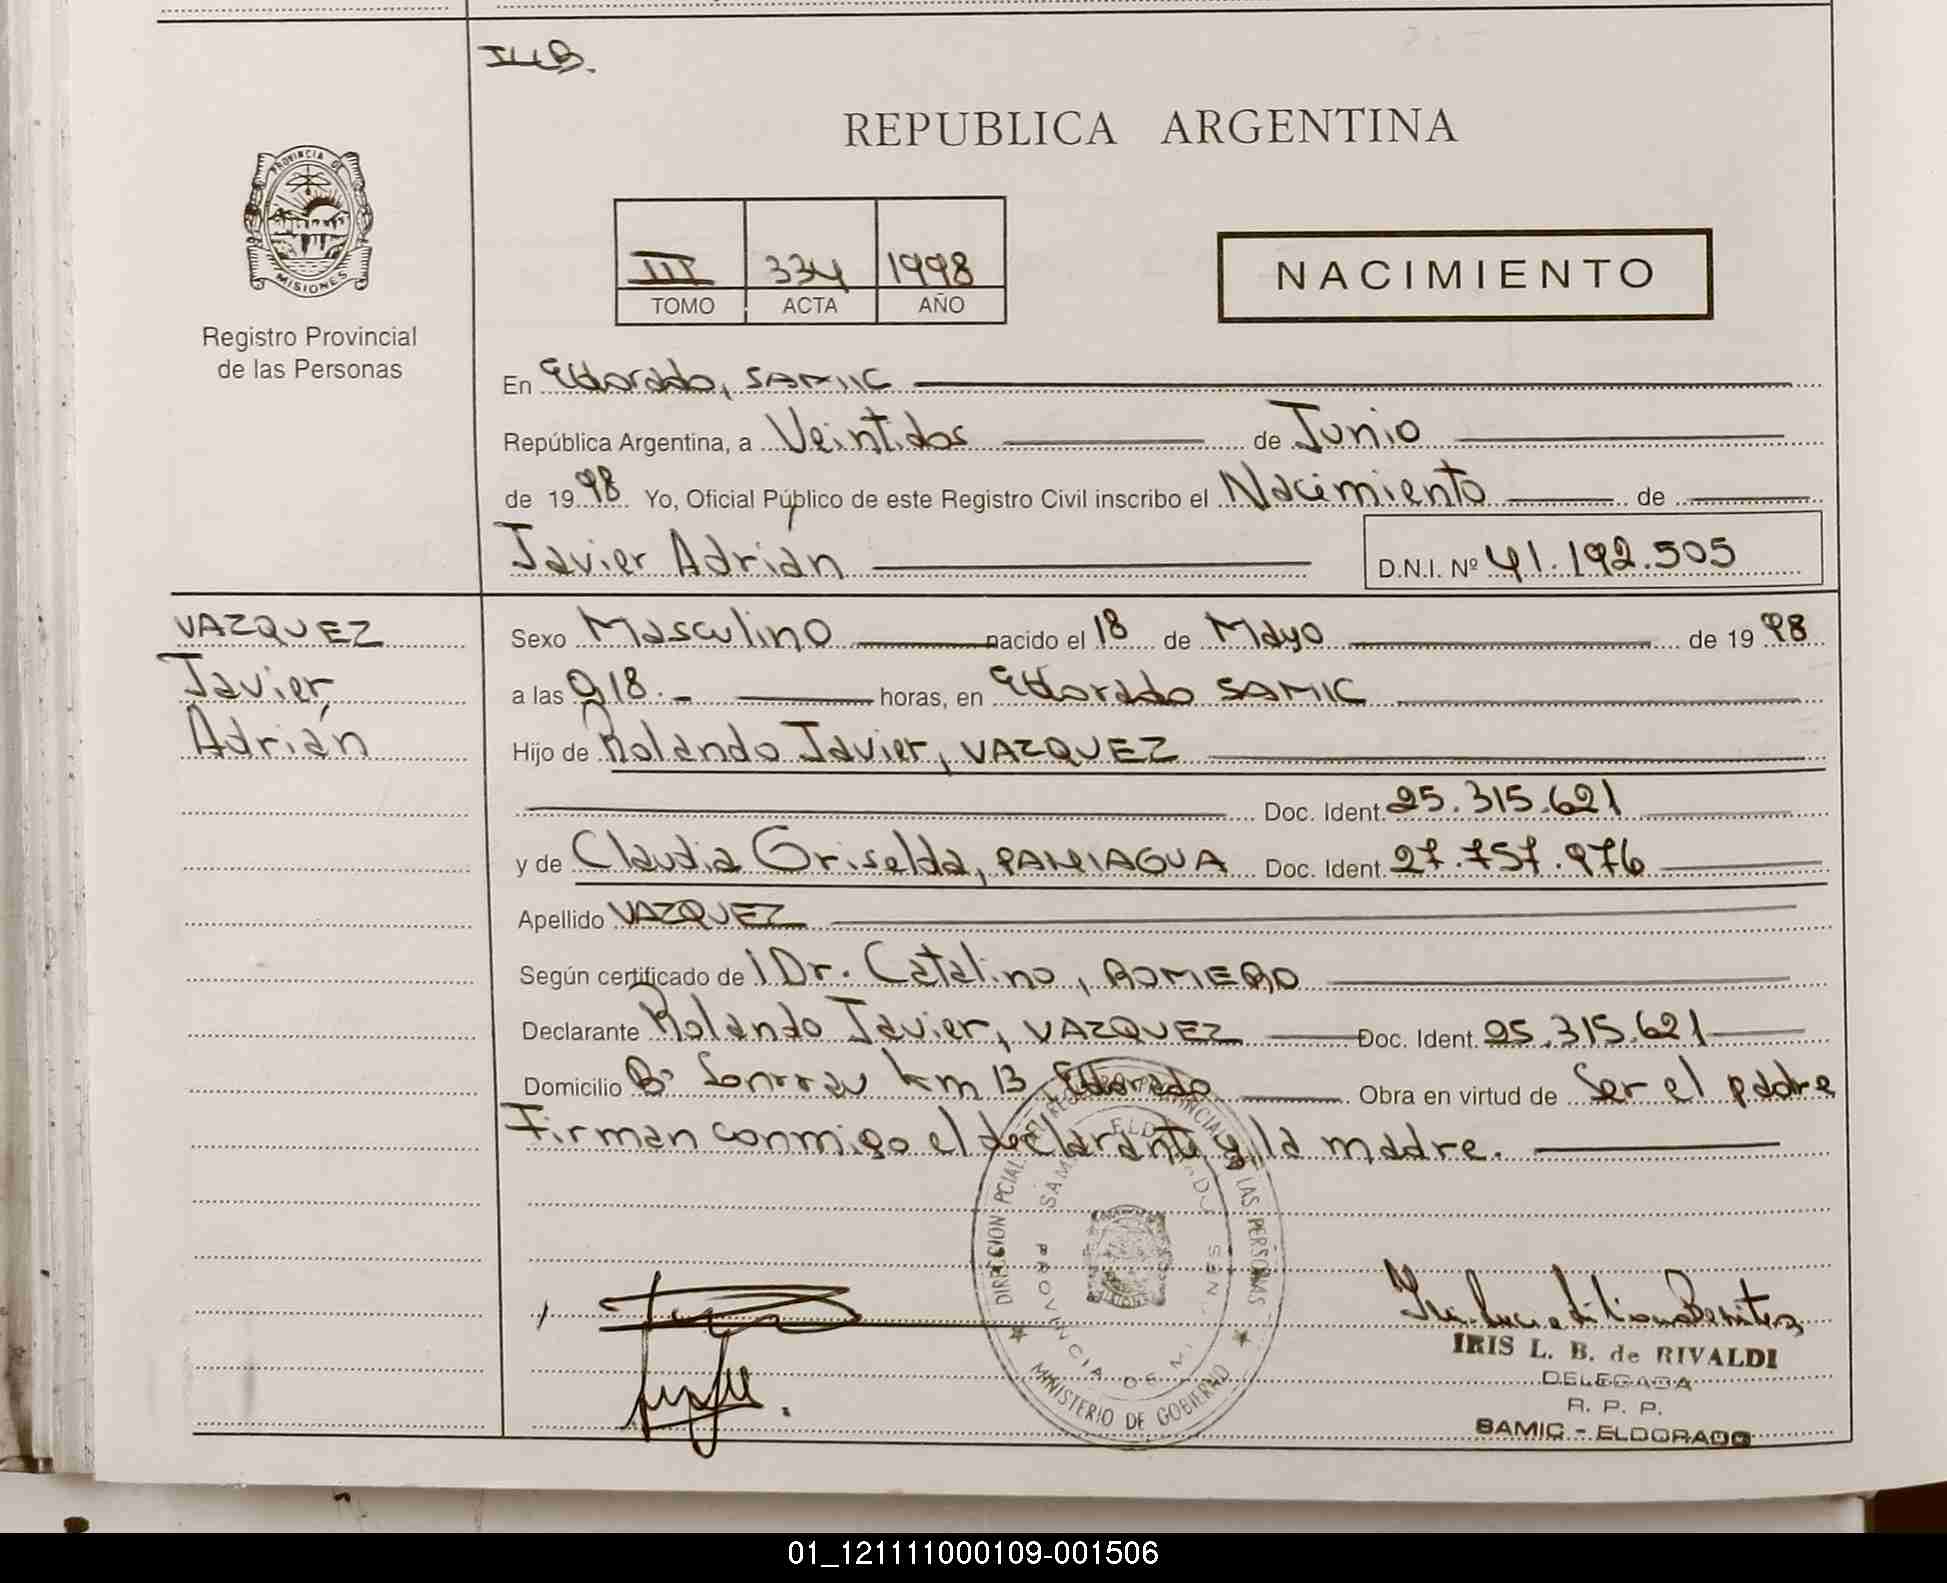 ILB.
REPUBLICA ARGENTINA
PROVINCIA DE
MISIONES
Registro Provincial
de las Personas
III 334 1998
TOMO ACTA AÑO
NACIMIENTO
En Eldorado, SAMIC
República Argentina, a Veintidos de Junio
de 1998 Yo, Oficial Público de este Registro Civil inscribo el Nacimiento de
Javier Adrián D.N.I. Nº 41.192.505
VAZQUEZ
Javier
Adrián
Sexo Masculino nacido el 18 de Mayo de 1998
a las 9,18.- horas, en Eldorado SAMIC
Hijo de Rolando Javier, VAZQUEZ
Doc. Ident. 25.315.621
y de Claudia Griselda, PANIAGUA Doc. Ident. 27.757.976
Apellido VAZQUEZ
Según certificado de l Dr. Catalino, ROMERO
Declarante Rolando Javier, VAZQUEZ Doc. Ident. 25.315.621
Domicilio Bº km 13 Eldorado Obra en virtud de Ser el padre
Firman conmigo el declarante y la madre.
DIRECCION PCIAL. DEL REGISTRO PROVINCIAL DE LAS PERSONAS
SAMIC ELDORADO
PROVINCIA DE MISIONES
MINISTERIO DE GOBIERNO
IRIS L. B. de RIVALDI
DELEGADA
R. P. P.
SAMIC - ELDORADO
01_121111000109-001506